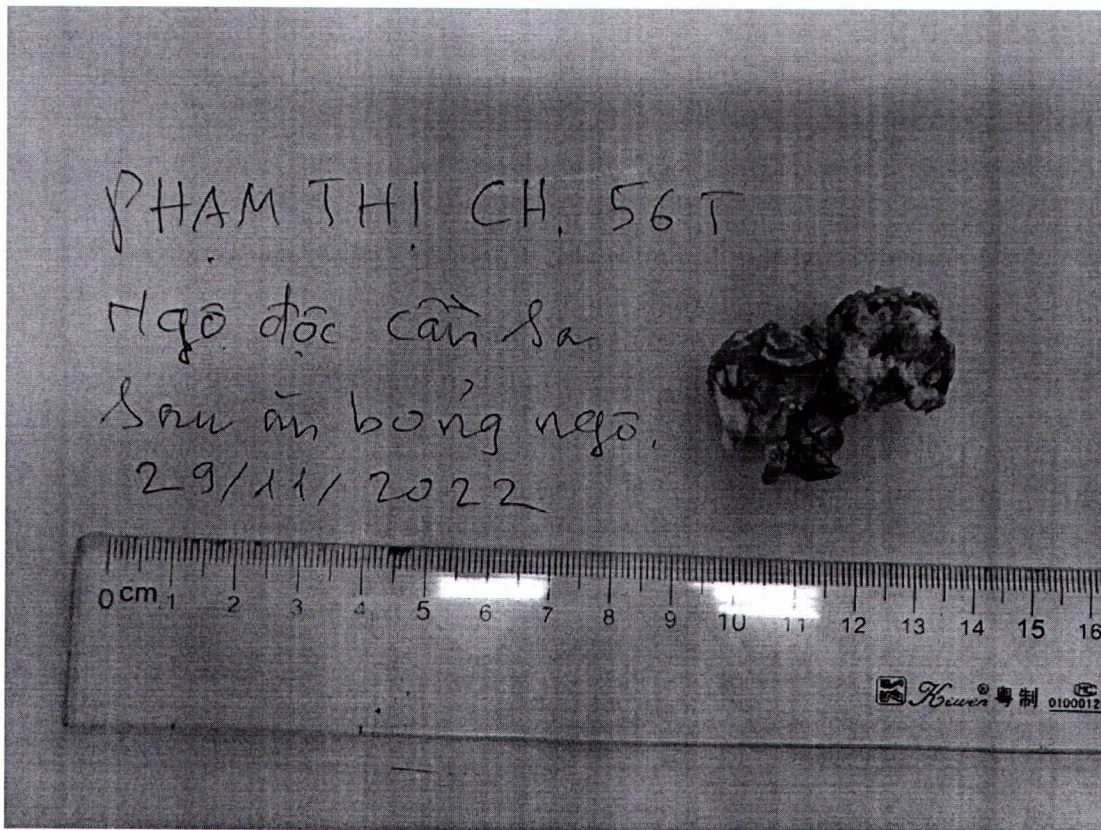 PHẠM THỊ CH. 56T
Ngộ độc cần sa
Sau ăn bỏng ngô.
29/11/2022
0 cm 1 2 3 4 5 6 7 8 9 10 11 12 13 14 15 16
Kiwen® 粤制 MC 0100012